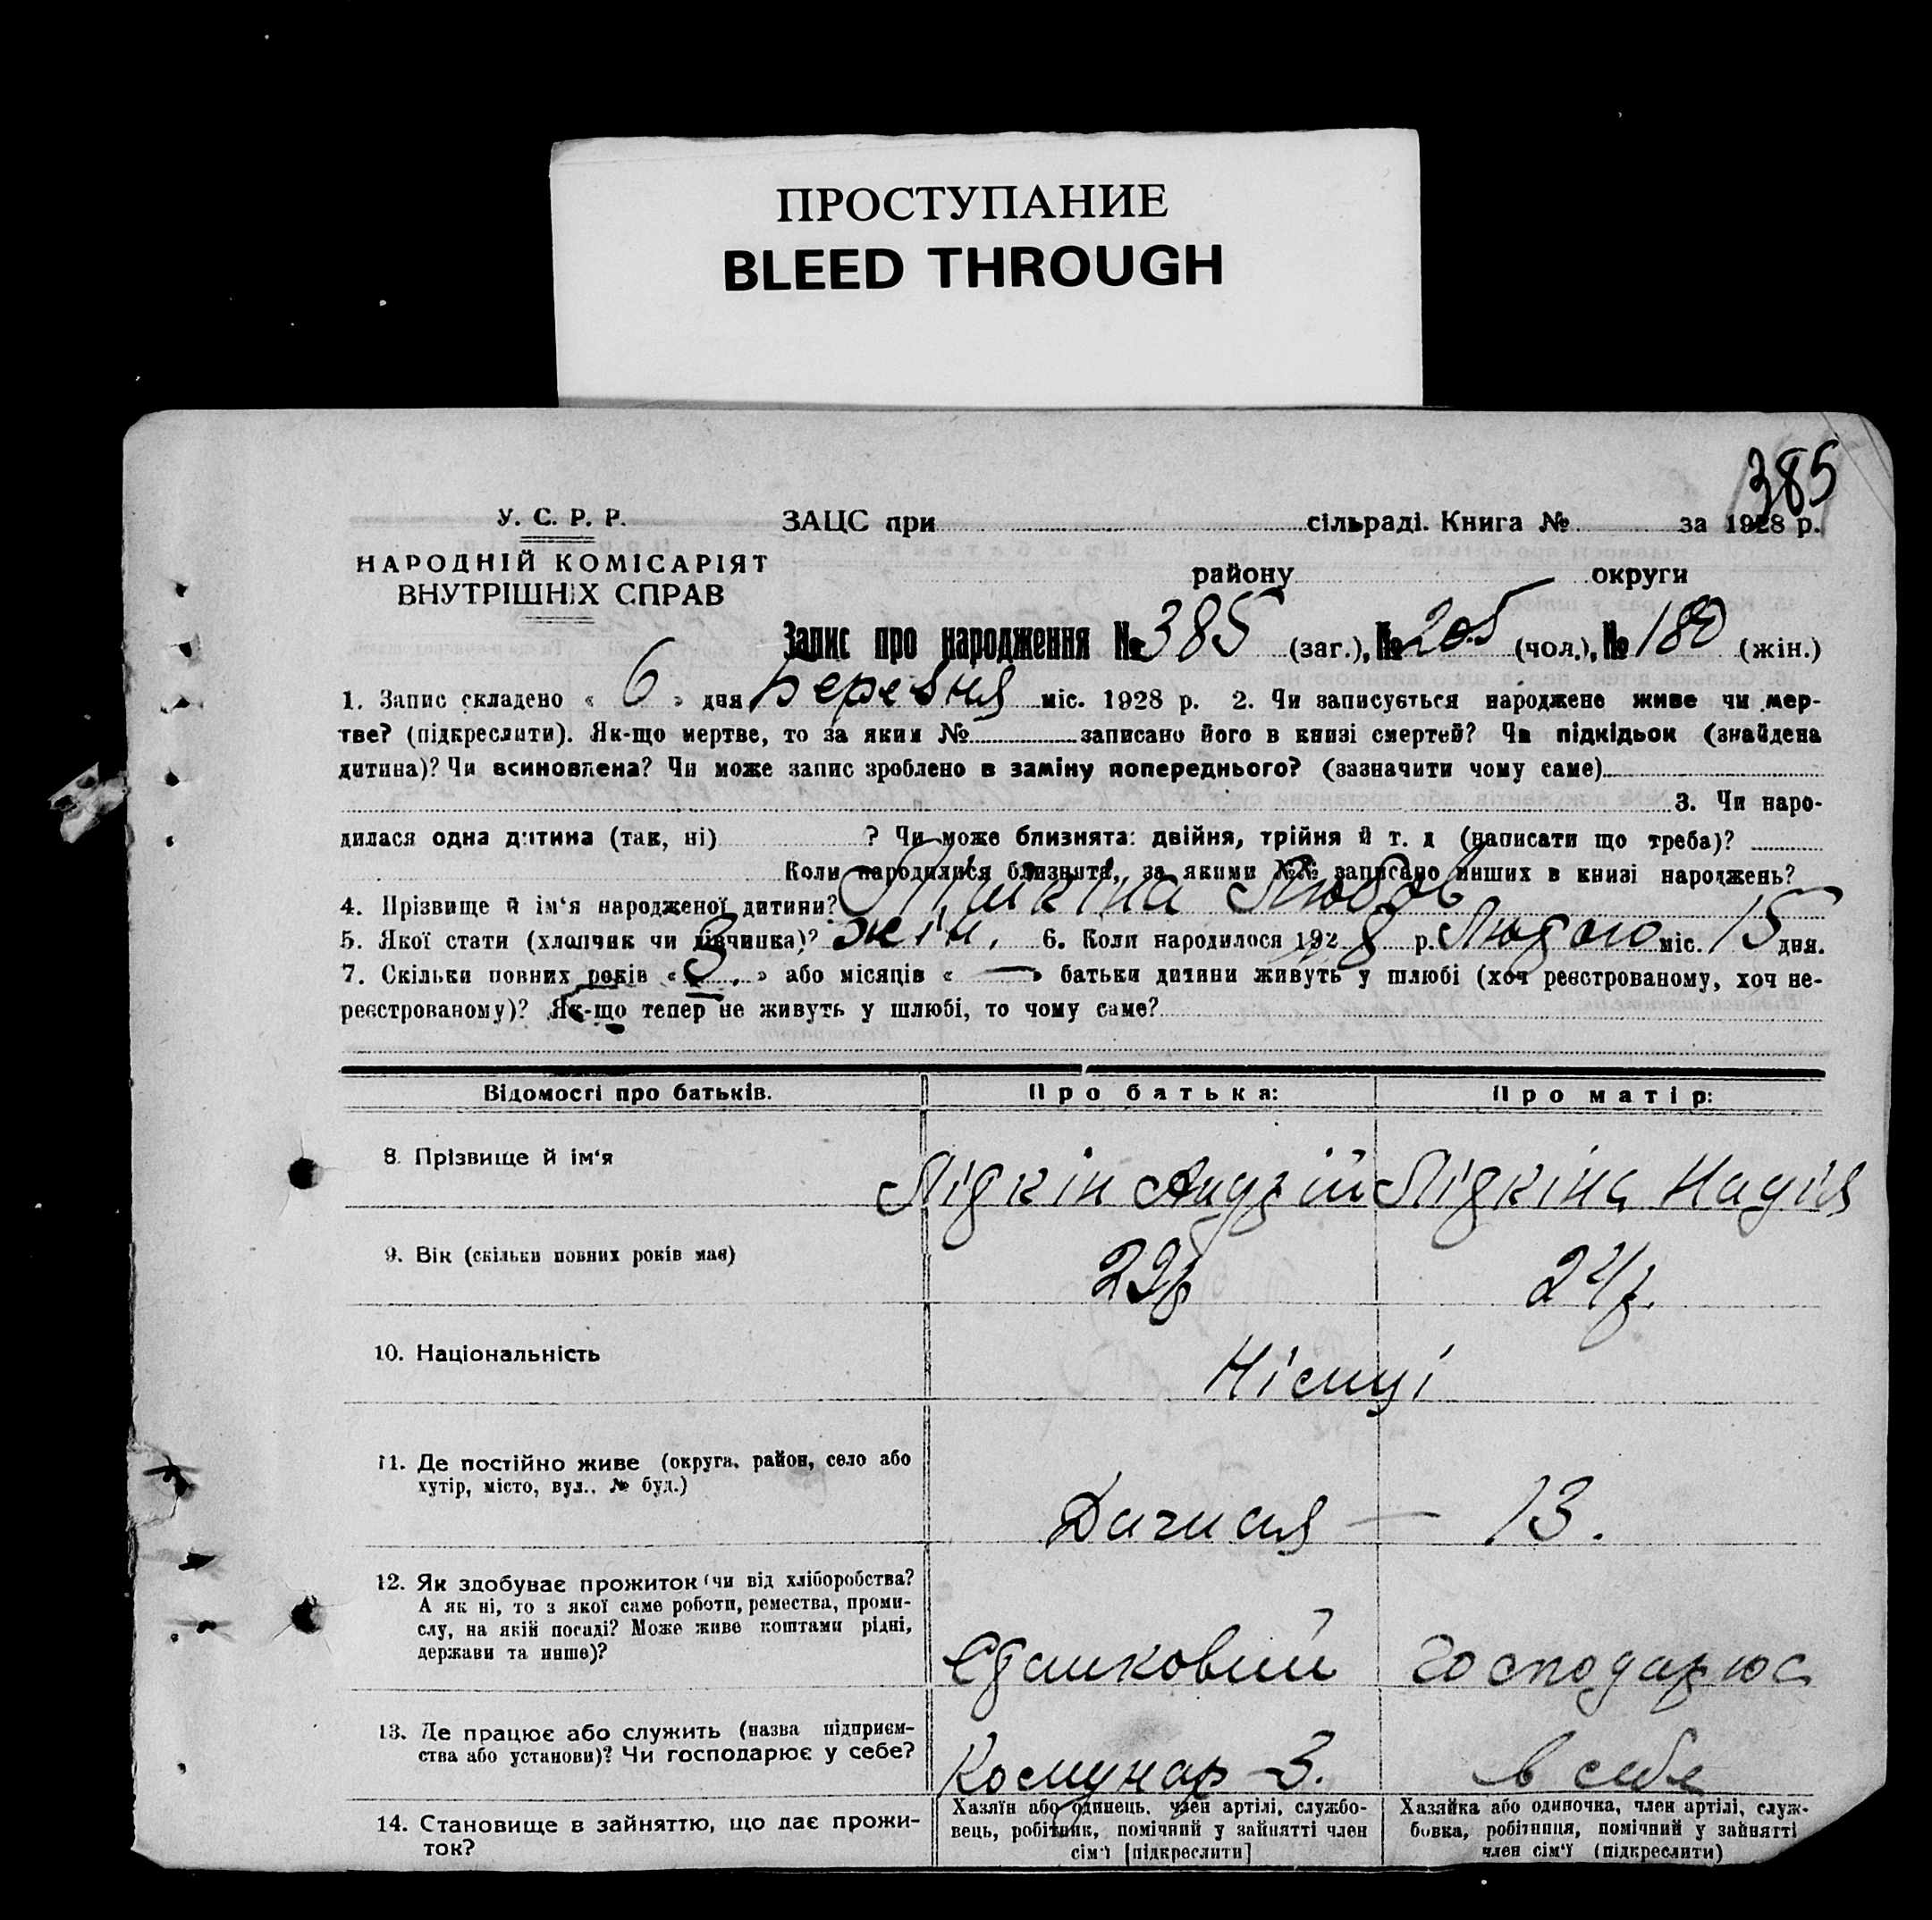 ПРОСТУПАНИЕ
BLEED THROUGH
385
У. С. Р. Р.
НАРОДНІЙ КОМІСАРІЯТ
ВНУТРІШНІХ СПРАВ
ЗАЦС при сільраді. Книга № за 1928 р.
району округи
Запис про народження № 385 (заг.), № 205 (чол.), № 180 (жін.)
1. Запис складено « 6 » дня Березня міс. 1928 р. 2. Чи записується народжене живе чи мер-
тве? (підкреслити). Як-що мертве, то за яким № записано його в книзі смертей? Чи підкідьок (знайдена
дитина)? Чи всиновлена? Чи може запис зроблено в заміну попереднього? (зазначити чому саме)
3. Чи наро-
дилася одна дитина (так, ні) ? Чи може близнята: двійня, трійня й т. д (написати що треба)?
Коли народилися близнята, за якими №№ записано инших в книзі народжень?
4. Прізвище й ім'я народженої дитини? Любов
5. Якої стати (хлопчик чи дівчинка)? жін. 6. Коли народилося 1928 р. Лютого міс. 15 дня.
7. Скільки повних років « 3 » або місяців « — » батьки дитини живуть у шлюбі (хоч реєстрованому, хоч не-
реєстрованому)? Як-що тепер не живуть у шлюбі, то чому саме?
Відомості про батьків. Про батька: Про матір:
8. Прізвище й ім'я Лідкін Андрій Лідкіна Надія
9. Вік (скільки повних років має) 24р.
10. Національність Німці
11. Де постійно живе (округа, район, село або
хутір, місто, вул., № буд.)
Дачная — 13.
12. Як здобуває прожиток (чи від хліборобства?
А як ні, то з якої саме роботи, ремества, проми-
слу, на якій посаді? Може живе коштами рідні,
держави та инше)?
господарює
13. Де працює або служить (назва підприєм-
ства або установи)? Чи господарює у себе?
Комунар З. в себе
14. Становище в зайняттю, що дає прожи-
ток?
Хазяїн або одинець, член артілі, службо-
вець, робітник, помічний у зайнятті член
сім'ї [підкреслити]
Хазяйка або одиночка, член артілі, служ-
бовка, робітниця, помічний у зайнятті
член сім'ї (підкреслити)